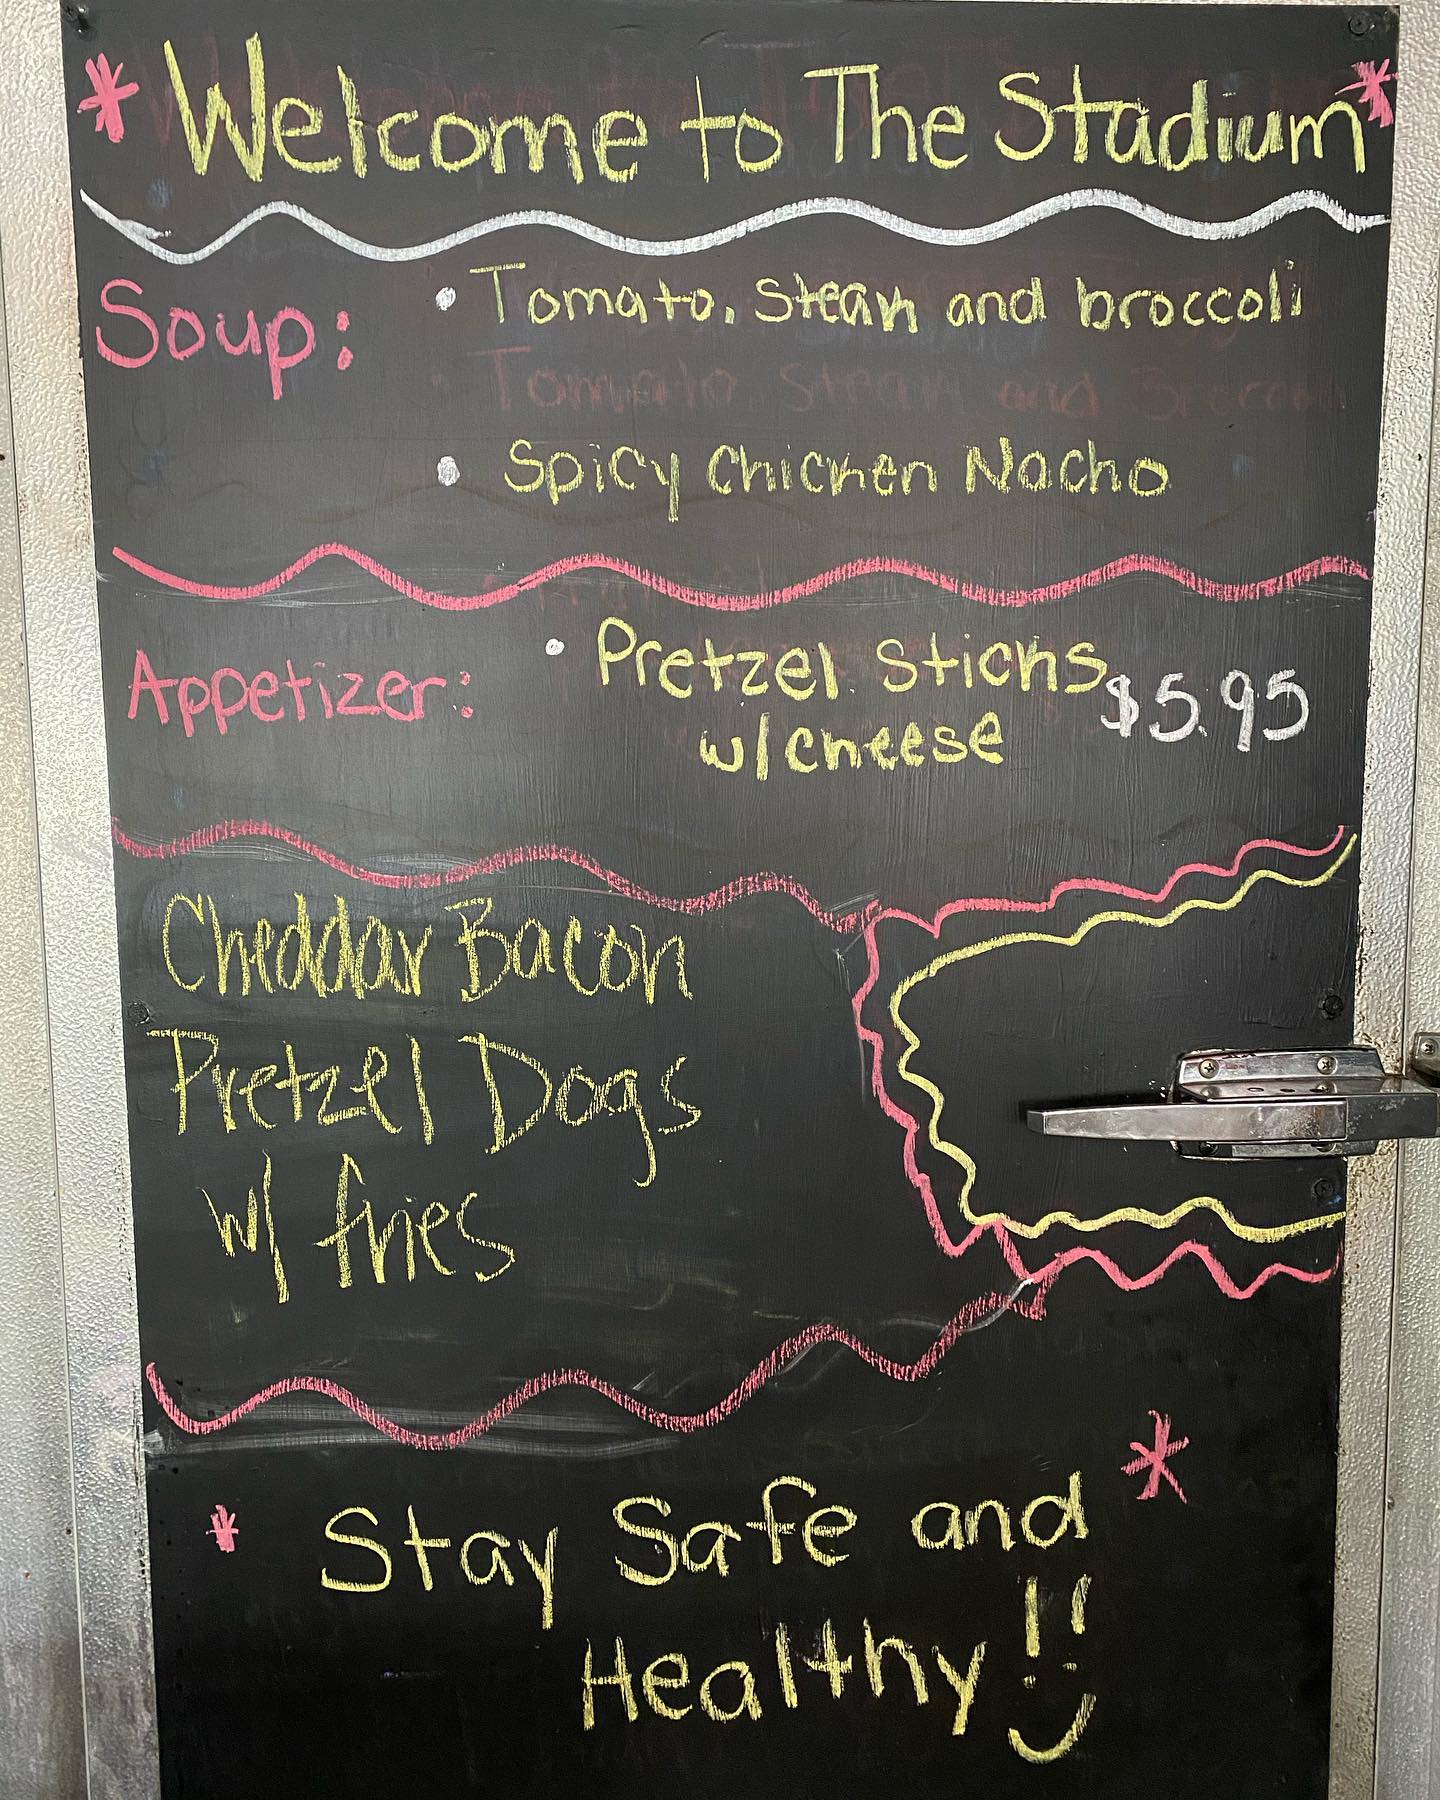 * Welcome to The Stadium *
Soup: • Tomato, Steak and broccoli
Tomato, Steak and
• Spicy Chicken Nacho
Appetizer: • Pretzel Sticks $5.95
w/cheese
Cheddar Bacon
Pretzel Dogs
w/ fries
* Stay Safe and *
Healthy!!